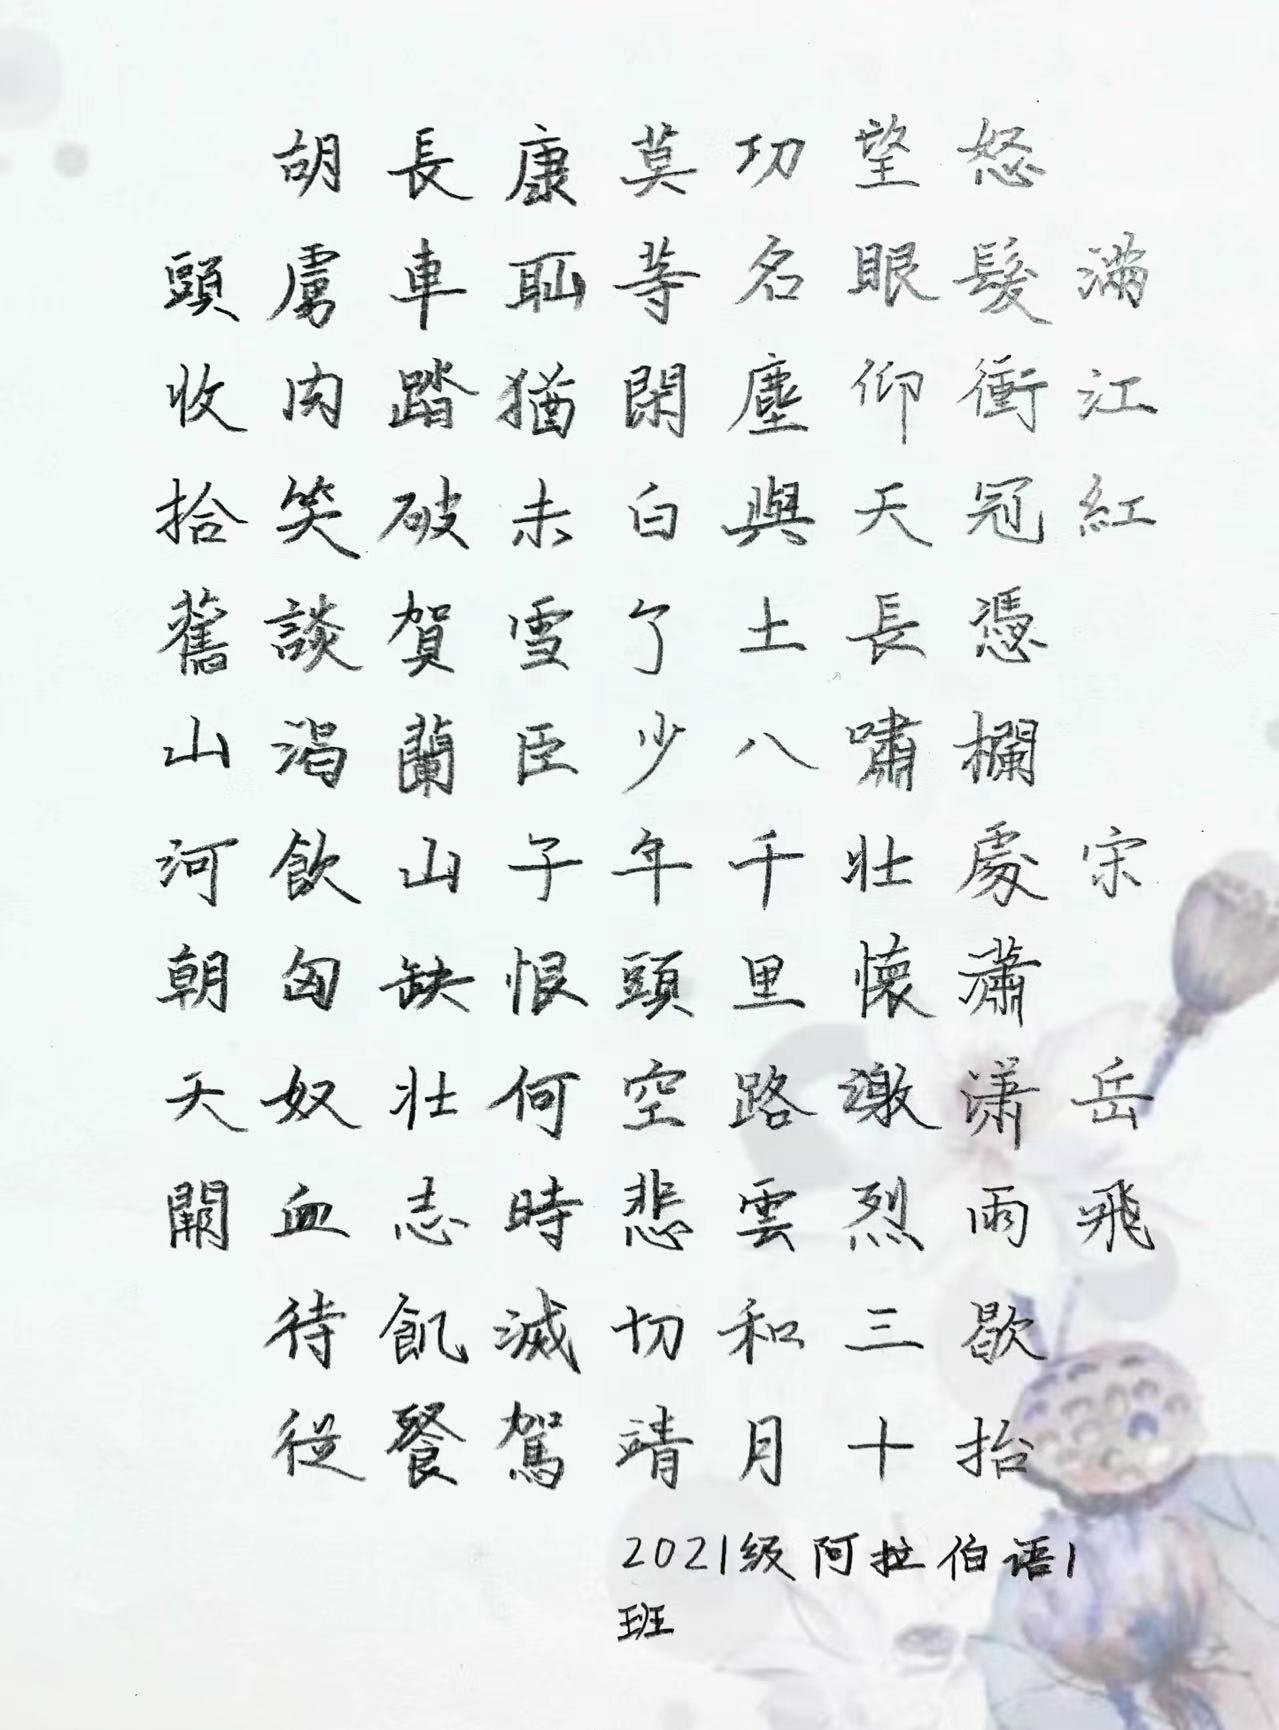 滿江紅 宋 岳飛
怒髮衝冠憑欄處蕭瀟雨歇抬
望眼仰天長嘯壯懷激烈三十
功名塵與土八千里路雲和月
莫等閑白了少年頭空悲切靖
康恥猶未雪臣子恨何時滅駕
長車踏破賀蘭山缺壯志飢餐
胡虜肉笑談渴飲匈奴血待從
頭收拾舊山河朝天闕
2021级阿拉伯语1
班